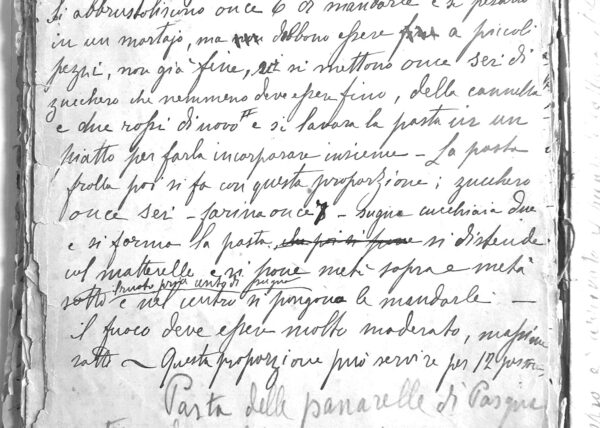 Si abbrustoliscono once 6 di mandarle e si pesano
in un mortajo, ma non debbono essere fini a piccoli
pezzi, non già fine, vi si mettono once sei di
zucchero che nemmeno deve essere fino, della cannella
e due rossi di uovo e si lavora la pasta in un
piatto per farla incorparare insieme – La pasta
frolla poi si fa con questa proporzione; zucchero
once sei – farina once 8 – sugna cucchiaia due
e si forma la pasta, che poi si pone si distende
col matterelle e si pone metà sopra e metà
unto di sugna
sotto e nel centro si pongono le mandarle –
il fuoco deve essere molto moderato, massime
sotto – Questa proporzione può servire per 12 persone
Pasta delle panarelle di Pasqua